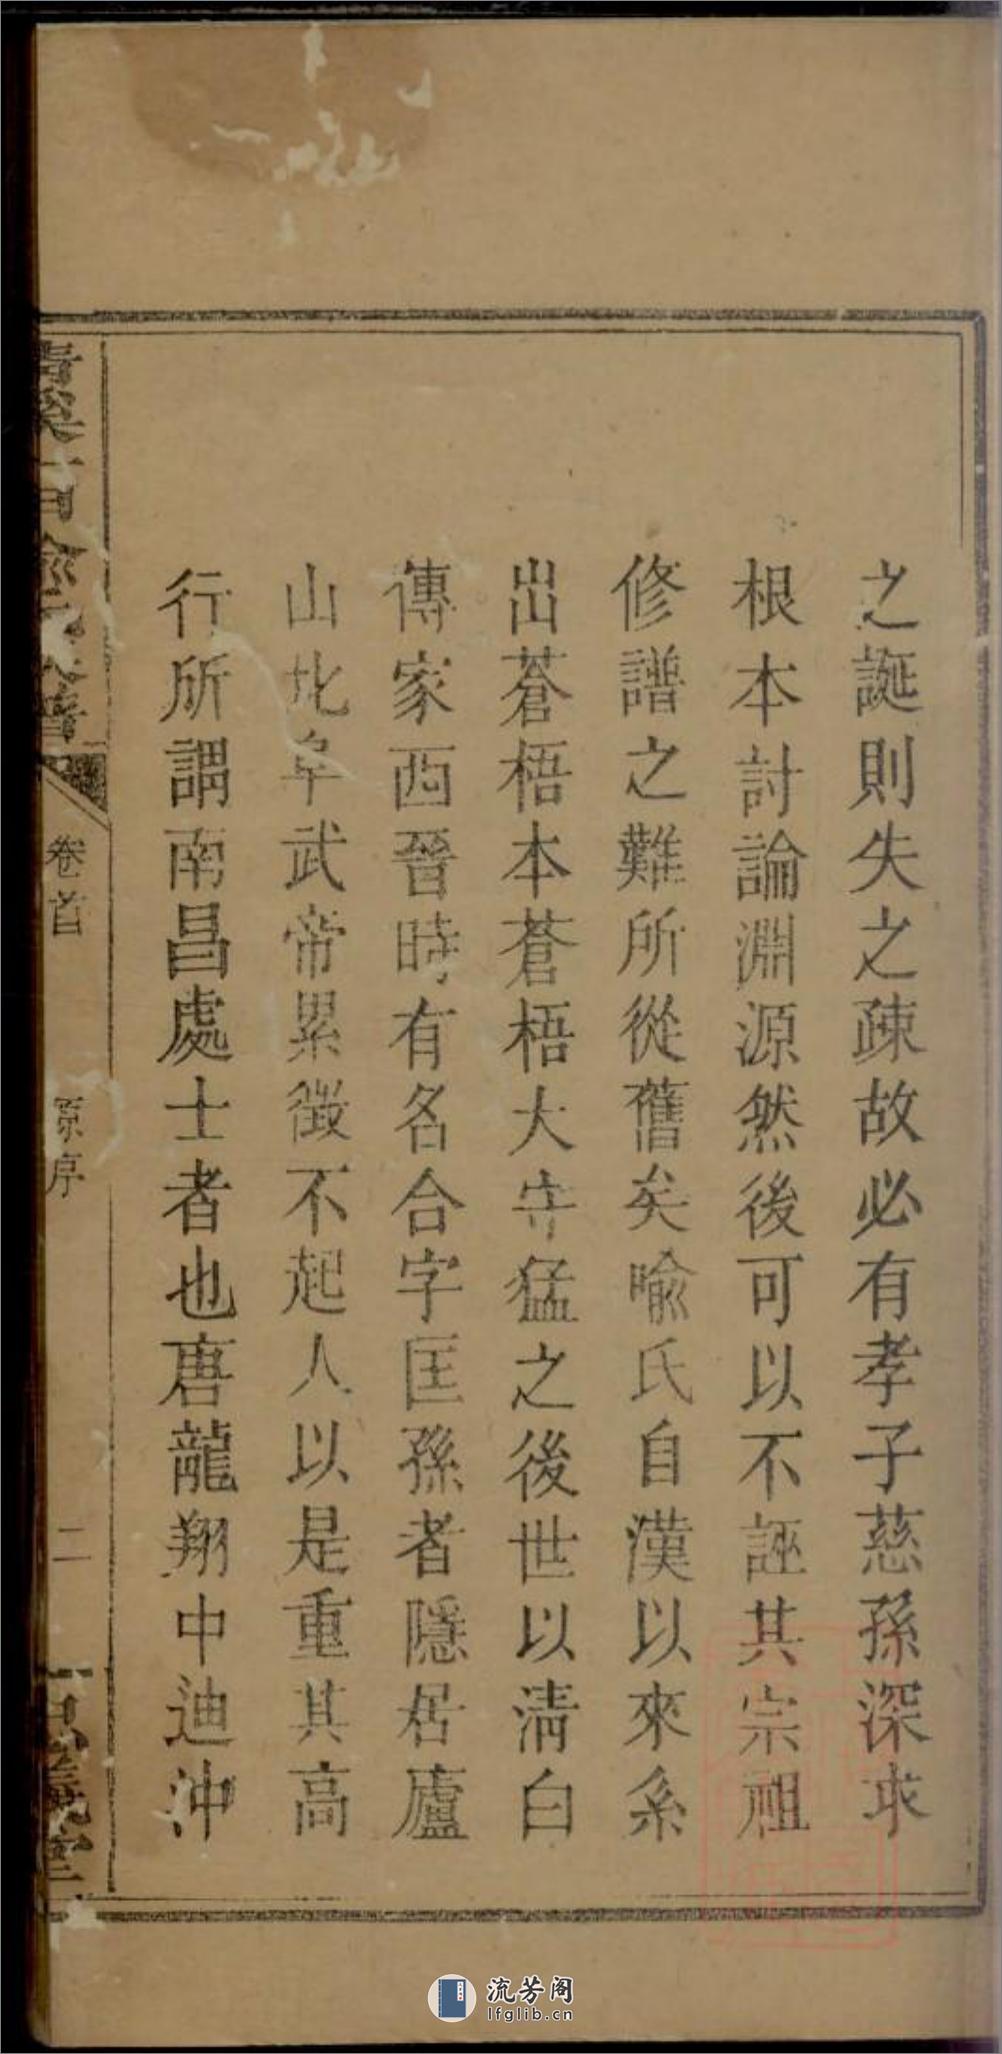 之誕則失之疎故必有孝子慈孫深求
根本討論淵源然後可以不誣其宗祖
修譜之難所從舊矣喻氏自漢以來系
出蒼梧本蒼梧大守猛之後世以清白
傳家西晉時有名合字匡孫者隱居廬
山北阜武帝累徵不起人以是重其高
行所謂南昌處士者也唐龍翔中迪沖
卷首
原序
二
流芳阁
lfglib.cn